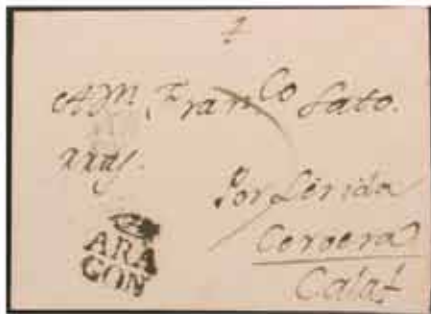 Fran.co Sato.
Por Lérida
Cervera
Calaf
ARA
GON